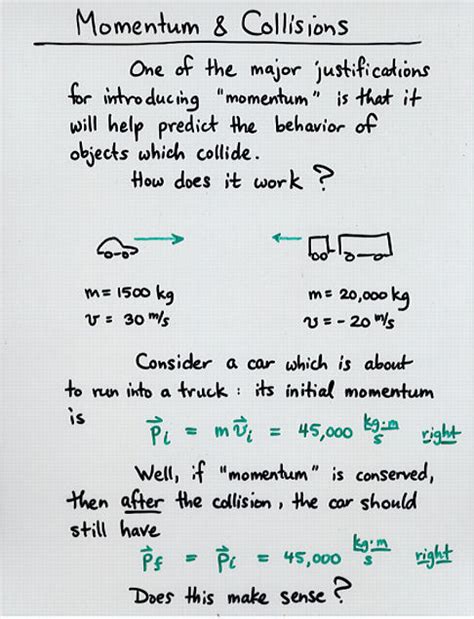 Momentum & Collisions
One of the major justifications
for introducing "momentum" is that it
will help predict the behavior of
objects which collide.
How does it work?
m = 1500 kg
v = 30 m/s
m = 20,000 kg
v = - 20 m/s
Consider a car which is about
to run into a truck : its initial momentum
is
p⃗i = m v⃗i = 45,000 kg·m/s right
Well, if "momentum" is conserved,
then after the collision, the car should
still have
p⃗f = p⃗i = 45,000 kg·m/s right
Does this make sense?